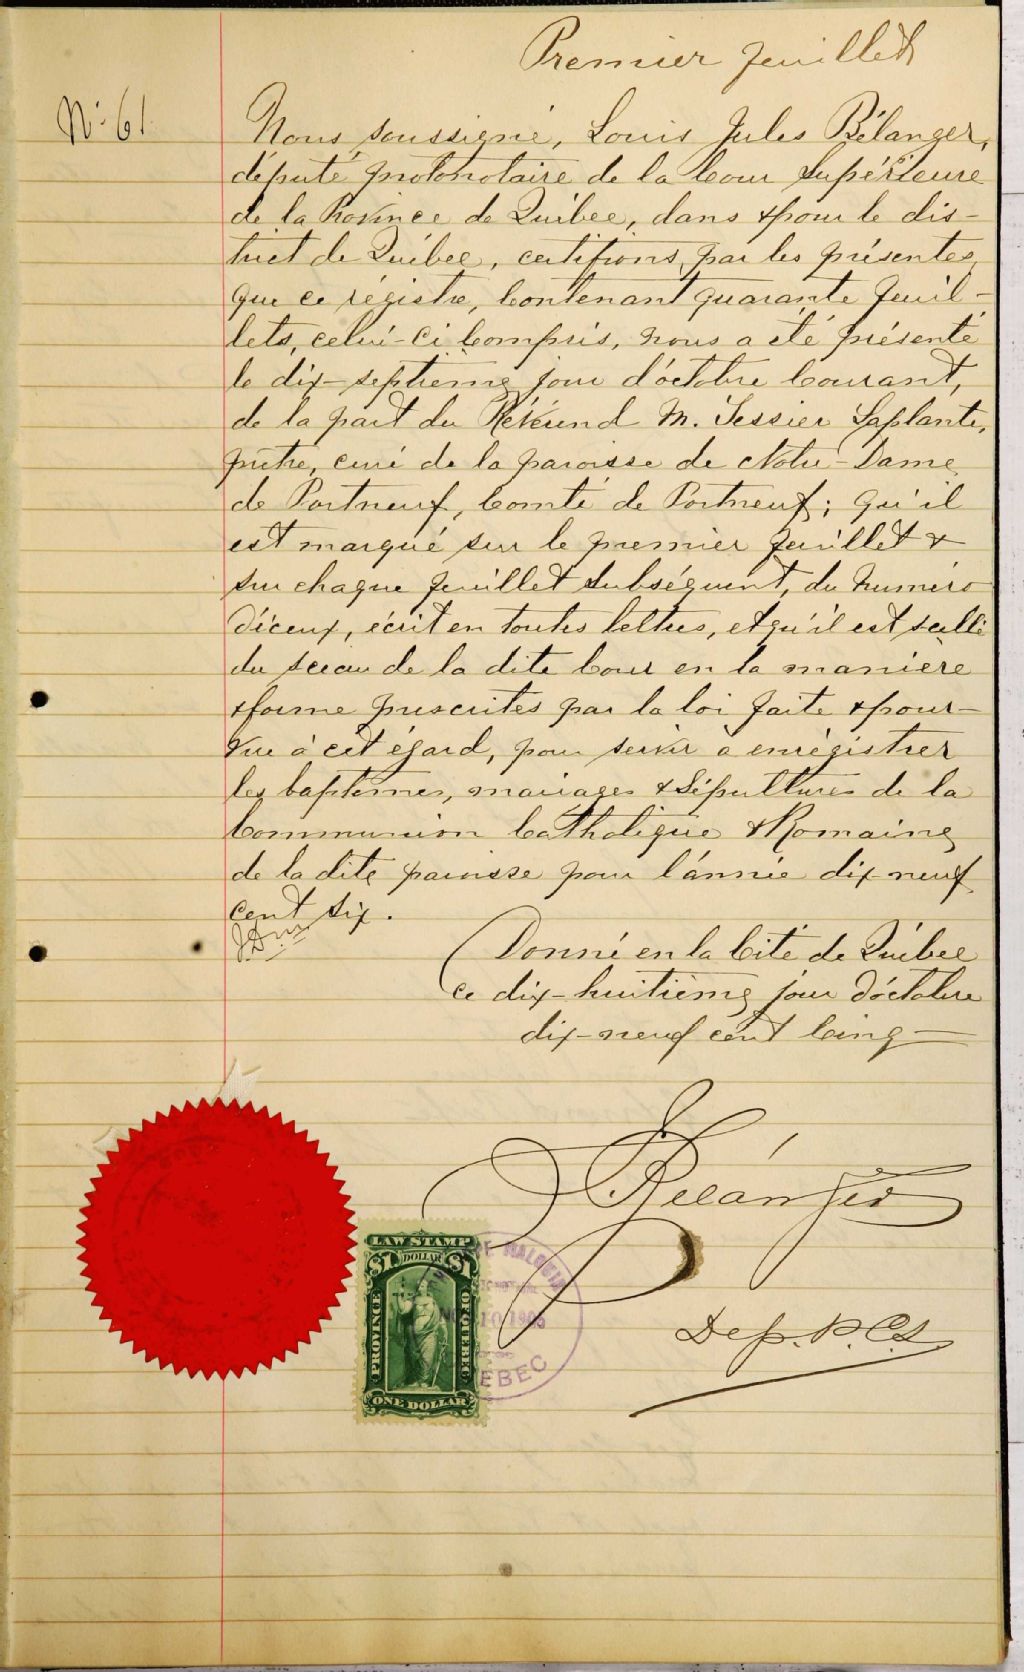 Premier feuillet
No 61.
Nous, soussigné, Louis Jules Bélanger,
député protonotaire de la Cour Supérieure
de la Province de Québec, dans & pour le dis-
trict de Québec, certifions, par les présentes,
que ce régistre, Contenant quarante feuil-
lets, celui-ci Compris, nous a été présenté
le dix-septième jour d'octobre Courant,
de la part du Révérend M. Tessier Laplante,
prêtre, curé de la paroisse de Notre-Dame
de Portneuf, Comté de Portneuf; qu'il
est marqué sur le premier feuillet &
sur chaque feuillet subséquent, du numéro
d'iceux, écrit en toutes lettres, et qu'il est scellé
du sceau de la dite Cour en la manière
& forme prescrites par la loi faite & pour-
vue à cet égard, pour servir à enrégistrer
les baptêmes, mariages & sépultures de la
Communion Catholique & Romaine
de la dite paroisse pour l'année dix-neuf
cent six.
Donné en la Cité de Québec
ce dix-huitième jour d'octobre
dix-neuf cent Cinq
Bélanger
Dep. P.C.S.
LAW STAMP
$1 DOLLAR $1
PROVINCE OF QUEBEC
ONE DOLLAR
MALOUIN
10 1905
QUEBEC